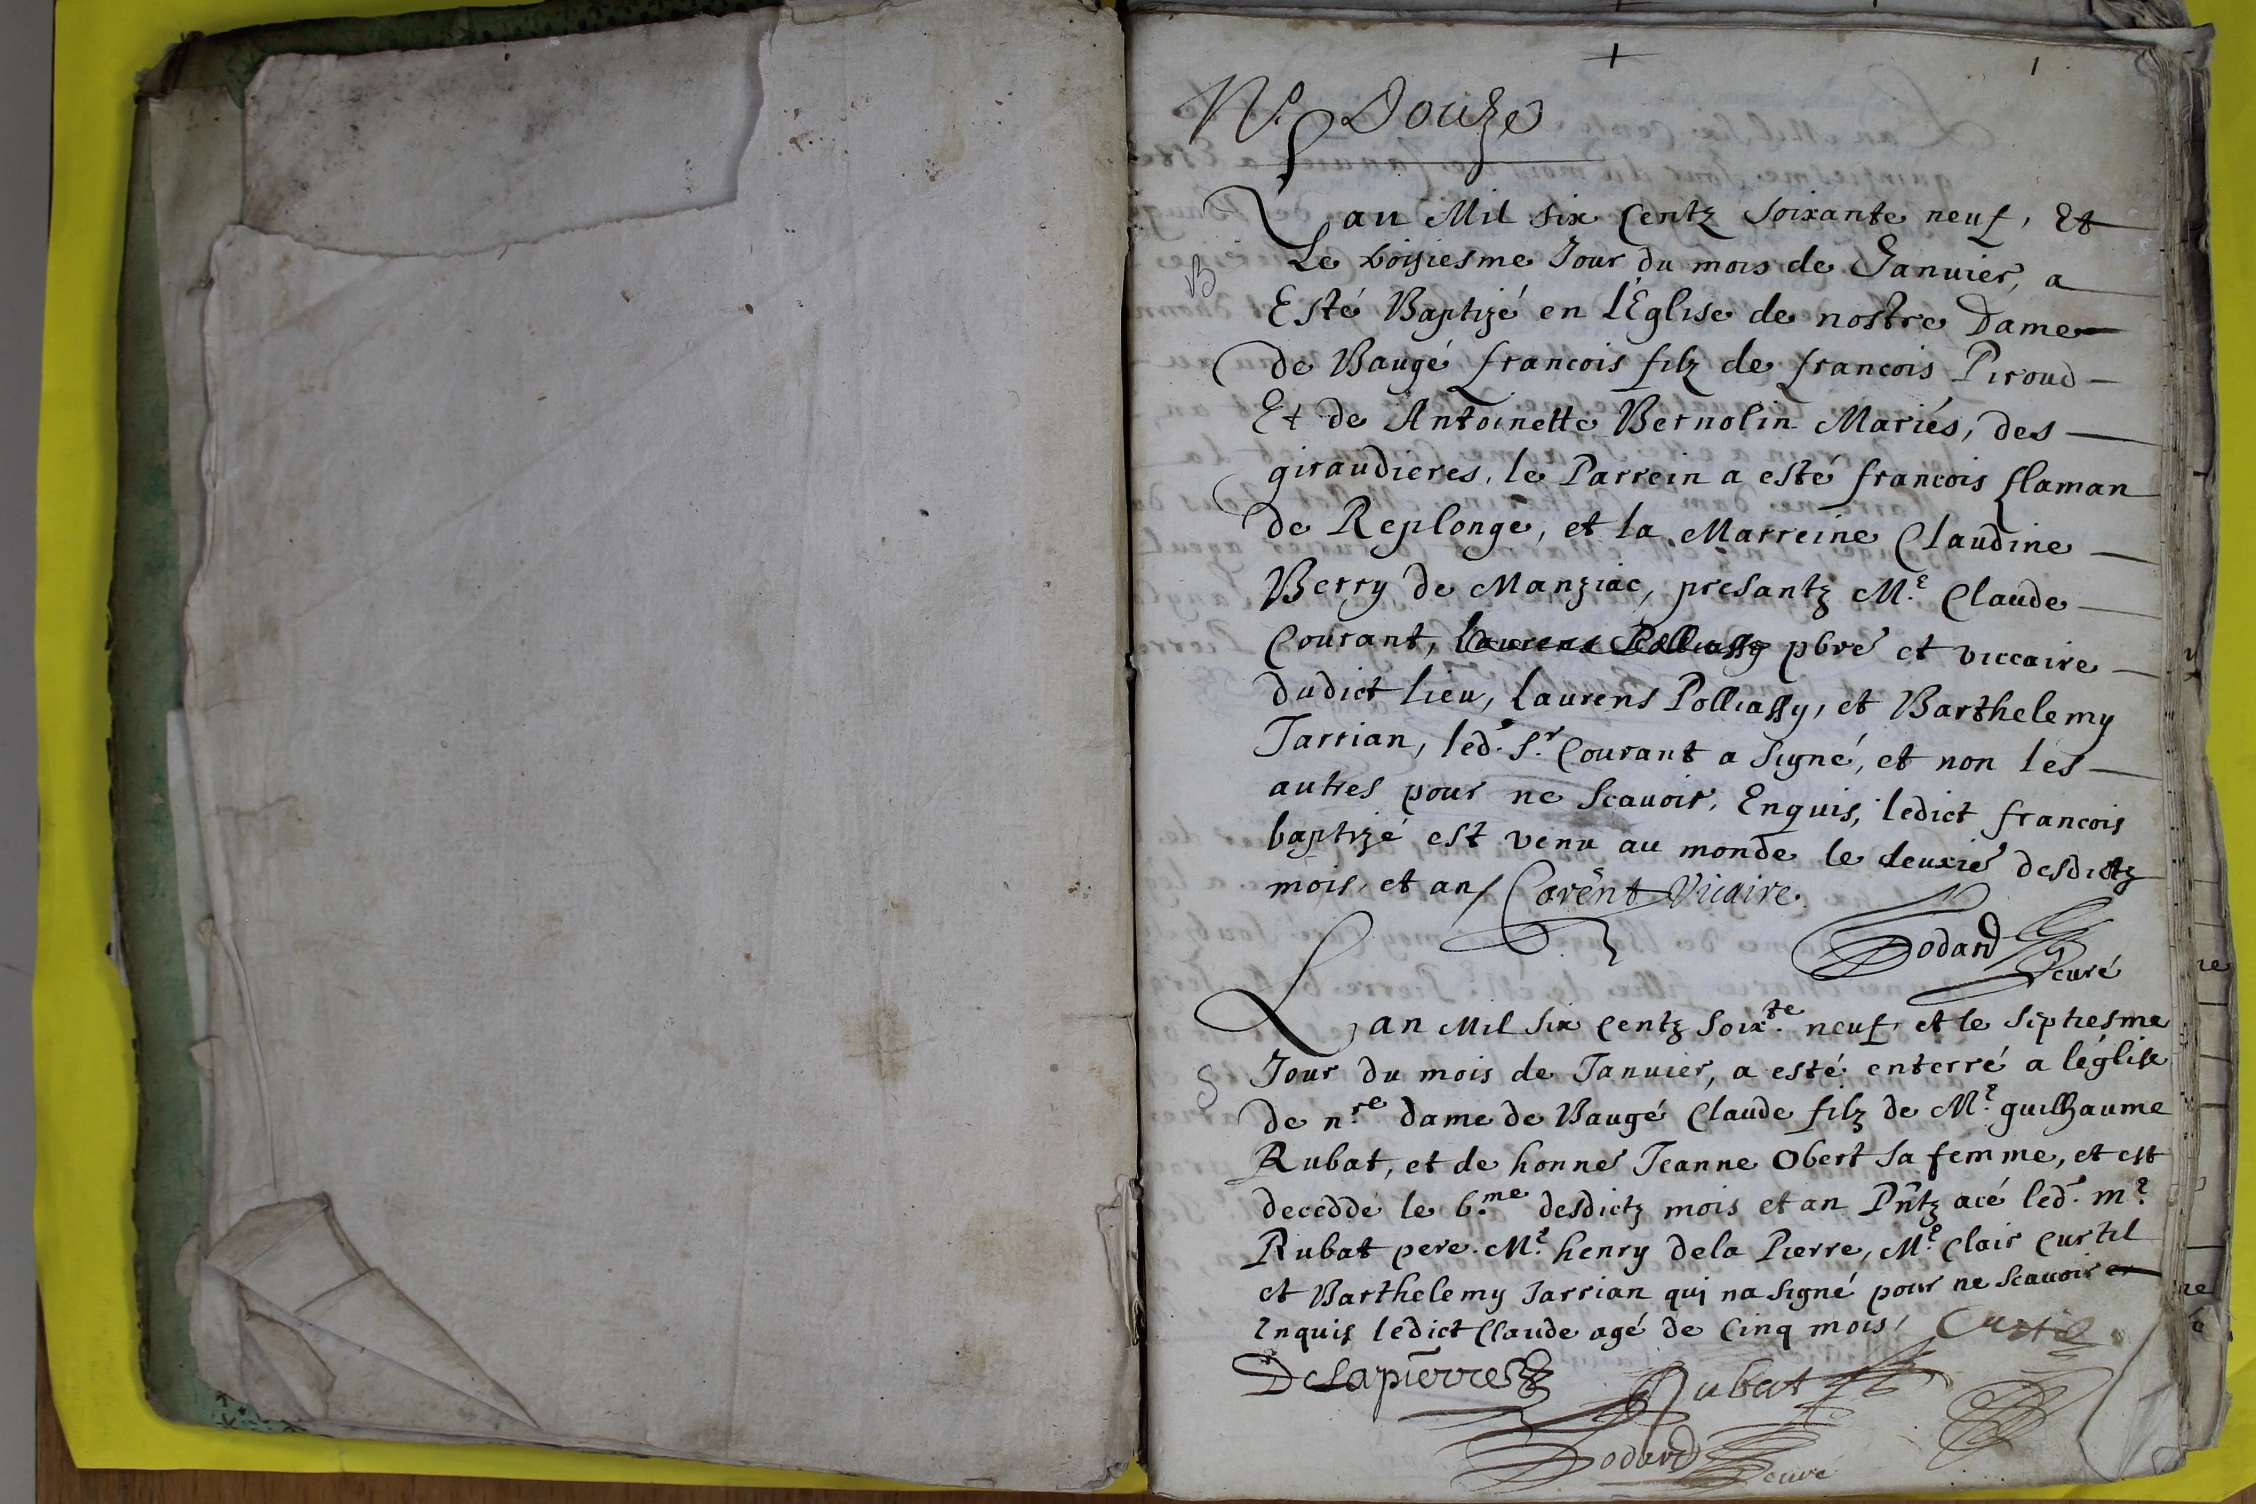 1
No Douze
Lan Mil six Centz soixante neuf, Et
B
Le troisiesme Jour du mois de Januier, a
Esté Baptizé en l'Eglise de nostre Dame
de Baugé francois filz de francois Piroud
Et de Antoinette Bernolin Mariés, des
giraudieres, le Parrein a esté francois flaman
de Replonge, et la Marreine Claudine
Berry de Manziac, presantz Mre Claude
Courant, pbre et viccaire
dudict lieu, Laurens Polliassy, et Barthelemy
Jarrian, led. Sr Courant a signé, et non les
autres pour ne scauoir, Enquis, ledict francois
baptizé est venu au monde le deuxie desdictz
mois, et an / Corent Vicaire
Dodard
curé
Lan Mil six Centz soixte neuf, et le siptiesme
S
Jour du mois de Januier, a esté enterré a léglise
de nre dame de Baugé Claude filz de Mre guilhaume
Rubat, et de honne Jeanne Obert sa femme, et est
decedde le 6me desdictz mois et an Pntz acé led. mre
Rubat pere. Mre henry dela Pierre, Mre Clair Curtil
et Barthelemy Jarrian qui na signé pour ne scauoir
Enquis ledict Claude agé de Cinq mois, Curtil
Delapierre Rubat
Dodard
curé